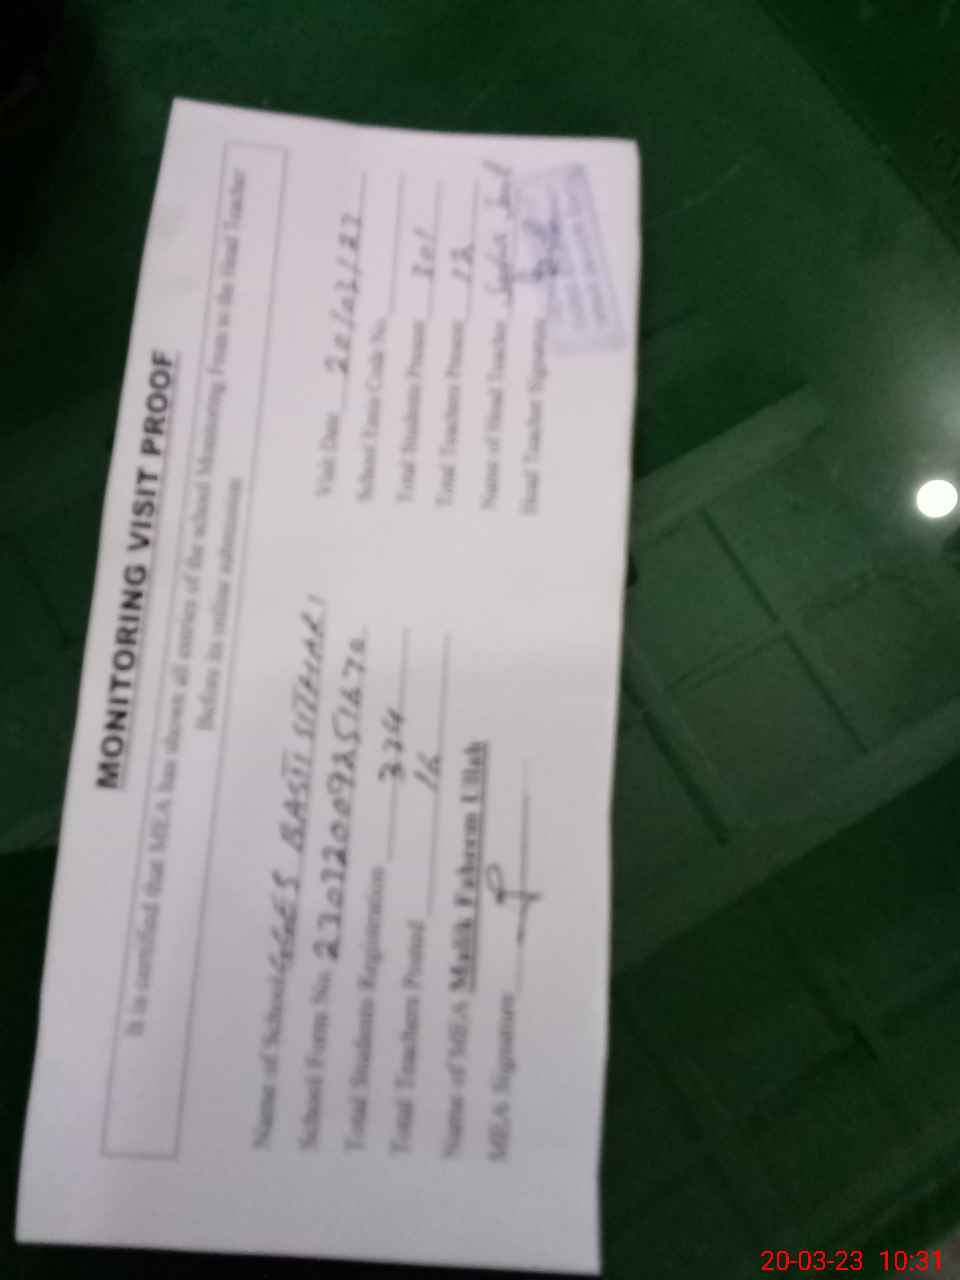 MONITORING VISIT PROOF
It is certified that MEA has shown all entries of the school Monitoring Form to the Head Teacher
Before its online submission
Name of School GGES BASTI SITHARI
Visit Date 20/03/23
School Form No.
School Emis Code No.
Total Students Registration 324
Total Students Present 301
Total Teachers Posted 16
Total Teachers Present 12
Name of MEA Malik Faheem Ullah
Name of Head Teacher
MEA Signature
Head Teacher Signature
20-03-23 10:31